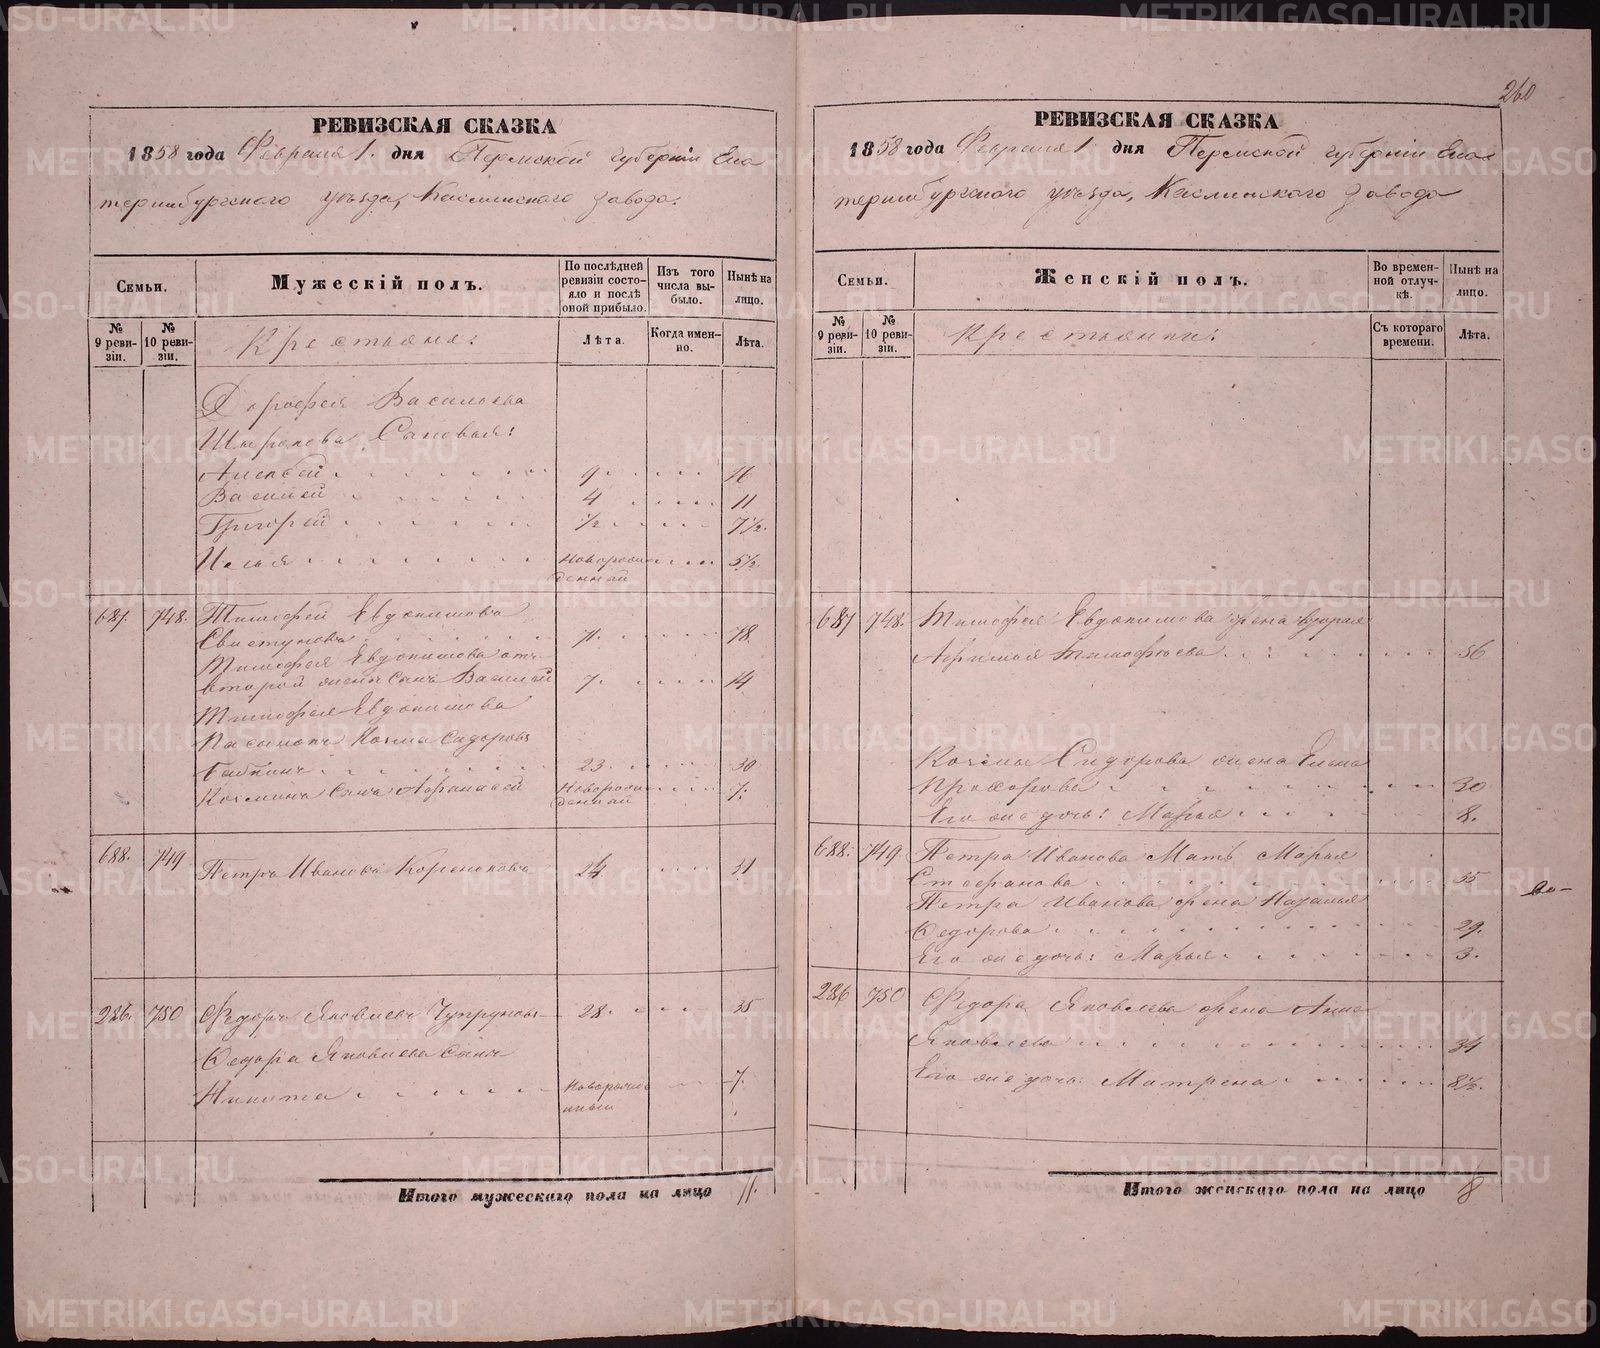 260
РЕВИЗСКАЯ СКАЗКА
1858 года Февраля 1. дня Пермской губернiи Ека
теринбургского уѣзда, Каслинского завода.
Семьи.
Мужескiй полъ.
По послѣдней ревизiи состояло и послѣ оной прибыло.
Изъ того числа выбыло.
Нынѣ на лицо.
№ 9 ревизiи.
№ 10 ревизiи.
Крестьяне:
Лѣта.
Когда именно.
Лѣта.
Дорофея Васильева
Широкова Сыновья:
Алексѣй 9 16
Василей 4 11
Григорей ½ 7½.
Илья новорож 5½.
денный
687. 748. Тимофей Евдокимовъ
Свистуновъ 71. 78.
Тимофея Евдокимова отъ
второй жены Сынъ Василей 7. 14
Тимофея Евдокимова
Пасынокъ Козма Сидоровъ
Бабкинъ 23. 30
Козминъ Сынъ Афанасей новорож 7.
денный
688. 749 Петръ Ивановъ 24 31
226. 750 Федоръ Яковлевъ Чупруновъ 28. 35
Федора Яковлева Сынъ
Никита новорожде 7.
нный
Итого мужескаго пола на лицо 11.
РЕВИЗСКАЯ СКАЗКА
1858 года Февраля 1. дня Пермской губернiи Ека
теринбургского уѣзда, Каслинского завода
Семьи.
Женскiй полъ.
Во временной отлучкѣ.
Нынѣ на лицо.
№ 9 ревизiи.
№ 10 ревизiи.
Крестьянки:
Съ котораго времени.
Лѣта.
687 748. Тимофея Евдокимова жена вторая
Тимофеева 56
Козмы Сидорова жена Елена
Прохорова 30
Его же дочь: Марья 8.
688. 749 Петра Иванова Мать Марья
Стефанова 55
Петра Иванова жена Наталья
Федорова 29.
Его же дочь: Марья 3.
226 750 Федора Яковлева жена Анна
Яковлева 34
Его же дочь: Матрена 8½.
Итого женскаго пола на лицо 8
METRIKI.GASO-URAL.RU